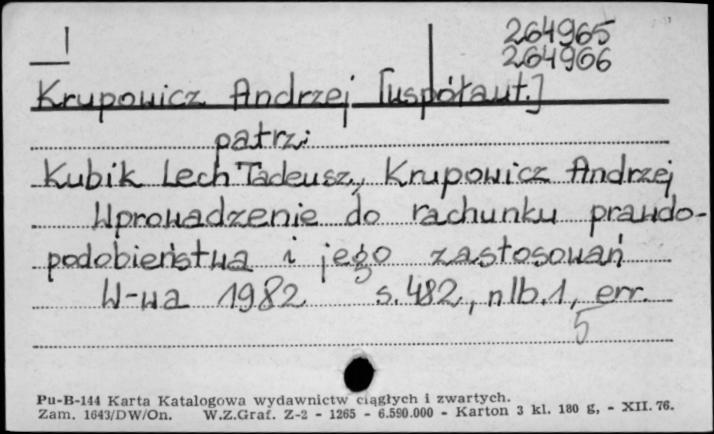 264965
264966
Krupowicz Andrzej [współaut.]
patrz:
Kubik Lech Tadeusz, Krupowicz Andrzej
Wprowadzenie do rachunku prawdo-
podobieństwa i jego zastosowań
W-wa 1982 s. 482, nlb. 1, err.
5
Pu-B-144 Karta Katalogowa wydawnictw ciągłych i zwartych.
Zam. 1643/DW/On. W.Z.Graf. Z-2 - 1265 - 6.590.000 - Karton 3 kl. 180 g, - XII. 76.